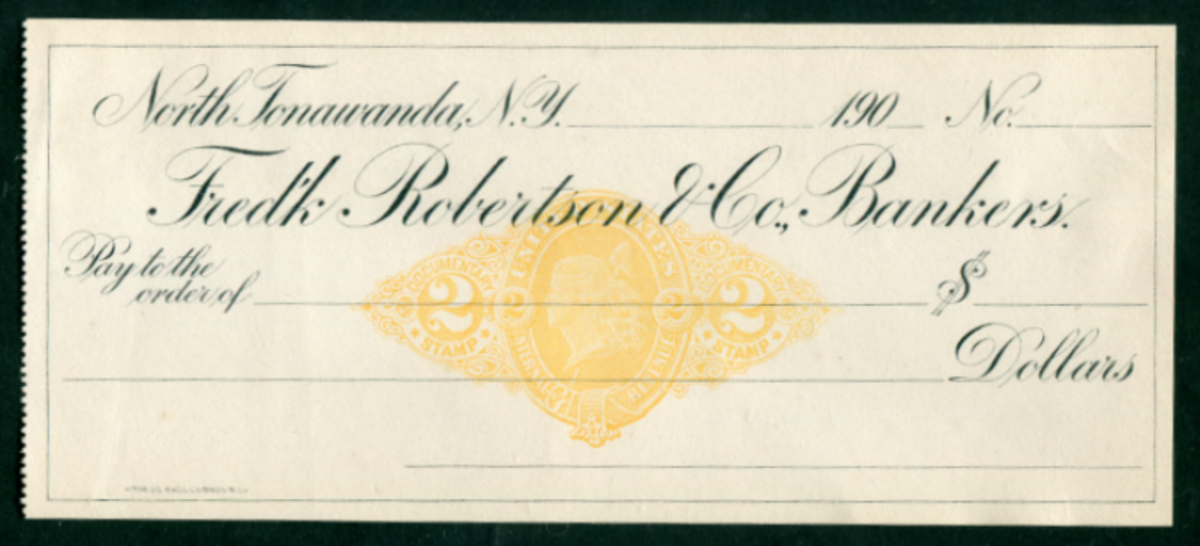 North Tonawanda, N.Y. 190 No.
Fred'k Robertson & Co., Bankers.
Pay to the
order of $
UNITED STATES
DOCUMENTARY 2 STAMP
2 2
DOCUMENTARY 2 STAMP
INTERNAL REVENUE
Dollars